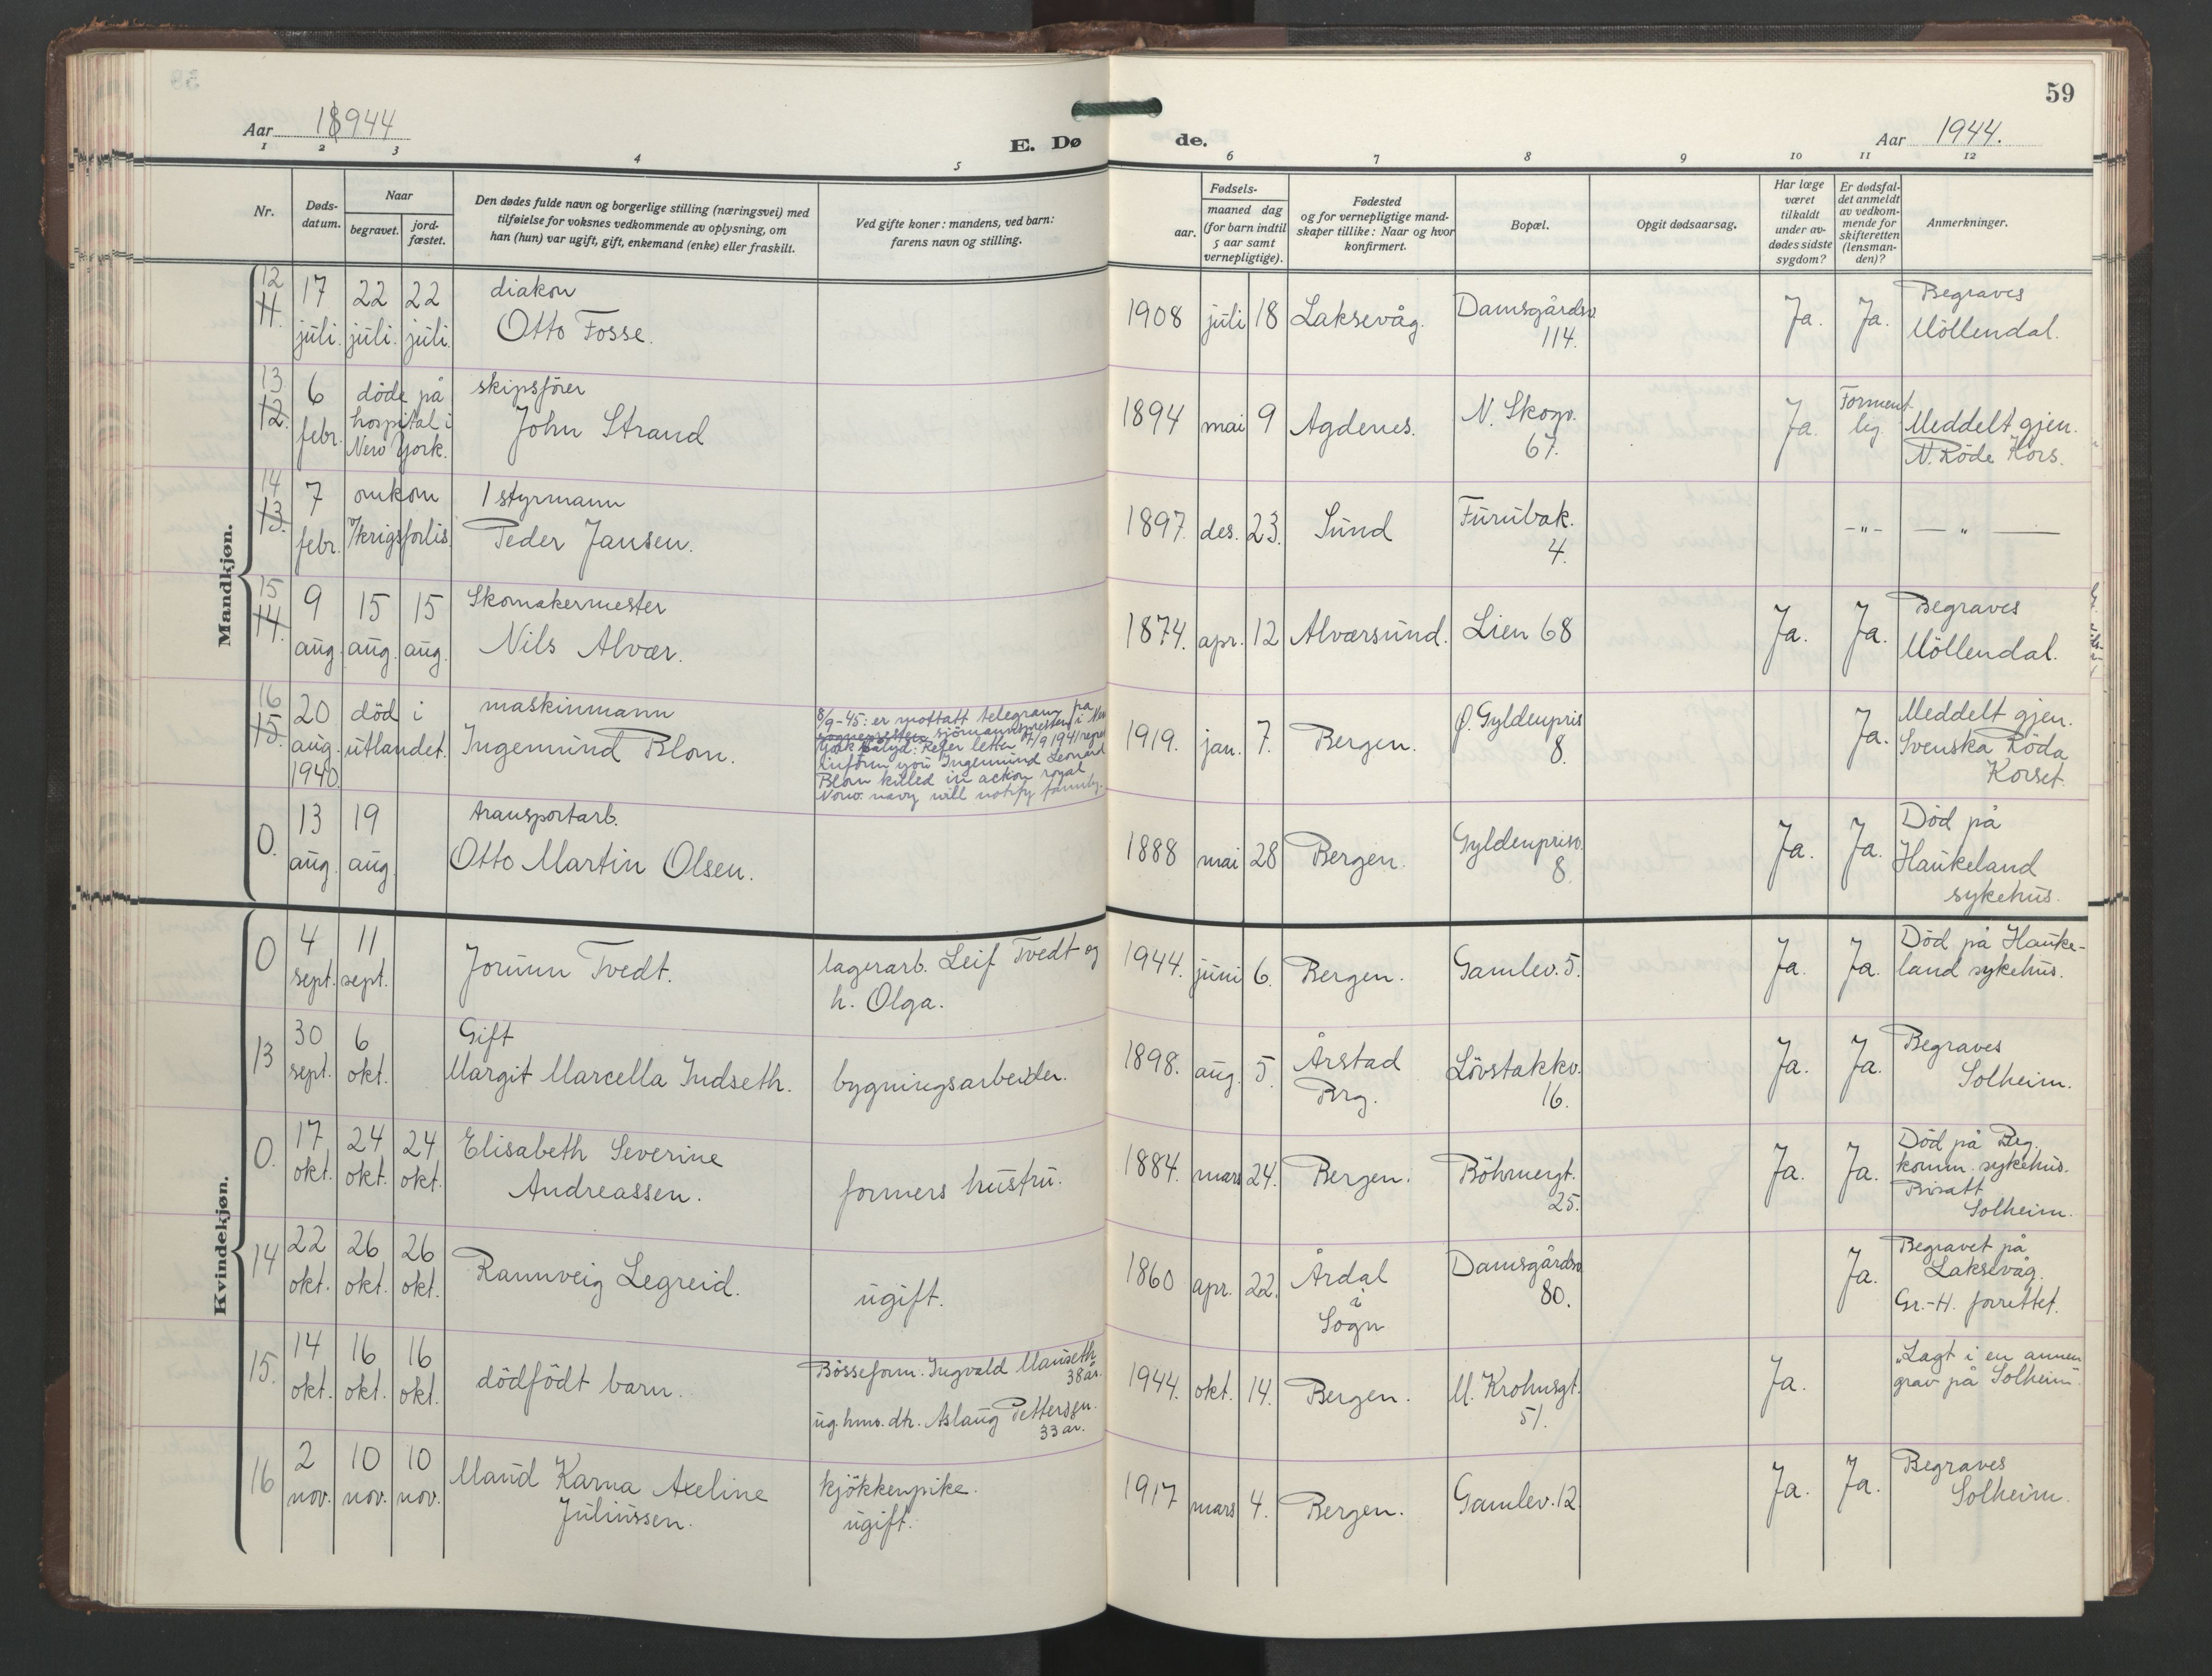 59
Aar 18944
E. Dø
de.
Aar 1944.
1 2 3 4 5 6 7 8 9 10 11 12
Nr.
Døds-
datum.
Naar
begravet.
jord-
fæstet.
Den dødes fulde navn og borgerlige stilling (næringsvei) med
tilføielse for voksnes vedkommende av oplysning, om
han (hun) var ugift, gift, enkemand (enke) eller fraskilt.
Ved gifte koner: mandens, ved barn:
farens navn og stilling.
Fødsels-
aar.
maaned dag
(for barn indtil
5 aar samt
vernepligtige).
Fødested
og for vernepligtige mand-
skaper tillike: Naar og hvor
konfirmert.
Bopæl.
Opgit dødsaarsag.
Har læge
været
tilkaldt
under av-
dødes sidste
sygdom?
Er dødsfal-
det anmeldt
av vedkom-
mende for
skifteretten
(lensman-
den)?
Anmerkninger.
Mandkjøn.
12
11.
17
juli.
22
juli.
22
juli.
diakon
Otto Fosse.
1908 juli 18 Laksevåg.
Damsgårdsv.
114.
Ja. Ja.
Begraves
Möllendal.
13
12.
6
febr.
döde på
hospital i
New York.
skipsförer
John Strand
1894 mai 9 Agdenes.
N. Skogv.
67.
Ja.
Forment-
lig.
Meddelt gjen.
N. Röde Kors.
14
13.
7
febr.
omkom
v/krigsforlis.
1 styrmann
Peder Jansen.
1897. des. 23. Sund
Furubak.
4.
-"- — " —
15
14.
9
aug.
15
aug.
15
aug.
Skomakermester
Nils Alvær.
1874. apr. 12 Alværsund. Lien 68
Ja. Ja.
Begraves
Möllendal.
16
15.
20
aug.
1940.
död i
utlandet.
maskinmann
Ingemund Blom.
8/9-45: er mottatt telegram fra
sogneprsten sjömannspresten i New
York Sälyd: Refer letter 17/9 1941 regret
inform you Ingemund Leonard
Blom killed in action royal
Norw. navy will notify family.
1919. jan. 7. Bergen.
Ø. Gyldenpris
8.
Ja.
Meddelt gjen.
Svenska Röda
Korset.
0.
13
aug.
19
aug.
transportarb.
Otto Martin Olsen.
1888 mai 28 Bergen.
Gyldenprisv.
8.
Ja. Ja.
Död på
Haukeland
sykehus.
Kvindekjøn.
0
4
sept.
11
sept.
Jorunn Tvedt.
lagerarb. Leif Tvedt og
h. Olga.
1944. juni 6. Bergen. Gamlev. 5.
Ja. Ja.
Död på Hauke-
land sykehus.
13
30
sept.
6
okt.
Gift
Margit Marcella Indseth.
bygningsarbeider.
1898. aug. 5.
Årstad
Brg.
Lövstakkv.
16.
Ja. Ja.
Begraves
Solheim.
0.
17
okt.
24
okt.
24
okt.
Elisabeth Severine
Andreassen.
formers hustru.
1884. mars 24. Bergen.
Böhmergt.
25.
Ja. Ja.
Död på Beg.
komm. sykehus.
Bisatt
Solheim.
14
22
okt.
26
okt.
26
okt.
Rannveig Legreid.
ugift.
1860 apr. 22.
Årdal
i
Sogn
Damsgårdsv
80.
Ja.
Begravet på
Laksevåg.
Gr.-H. forrettet.
15.
14
okt.
16
okt.
16
okt.
dödfödt barn.
Bösseform. Ingvald Mauseth
38 år.
ug. hms. dtr. Aslaug Pettersen.
33 år.
1944. okt. 14. Bergen.
M. Krohnsgt.
51.
Ja.
"Lagt i en annen
grav på Solheim.
16
2
nov.
10
nov.
10
nov.
Maud Karna Axeline
Juliussen.
kjökkenpike.
ugift.
1917 mars 4. Bergen. Gamlev. 12.
Ja. Ja.
Begraves
Solheim.